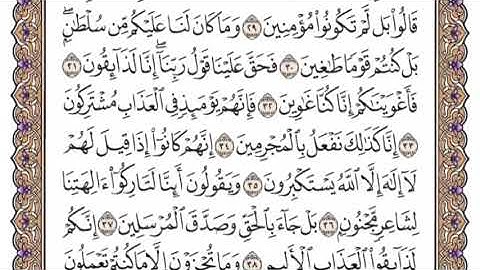 قَالُوا۟ بَل لَّمْ تَكُونُوا۟ مُؤْمِنِينَ ٢٩ وَمَا كَانَ لَنَا عَلَيْكُم مِّن سُلْطَٰنٍۭ ۖ
بَلْ كُنتُمْ قَوْمًا طَٰغِينَ ٣٠ فَحَقَّ عَلَيْنَا قَوْلُ رَبِّنَآ ۖ إِنَّا لَذَآئِقُونَ ٣١
فَأَغْوَيْنَٰكُمْ إِنَّا كُنَّا غَٰوِينَ ٣٢ فَإِنَّهُمْ يَوْمَئِذٍ فِى ٱلْعَذَابِ مُشْتَرِكُونَ
٣٣ إِنَّا كَذَٰلِكَ نَفْعَلُ بِٱلْمُجْرِمِينَ ٣٤ إِنَّهُمْ كَانُوٓا۟ إِذَا قِيلَ لَهُمْ
لَآ إِلَٰهَ إِلَّا ٱللَّهُ يَسْتَكْبِرُونَ ٣٥ وَيَقُولُونَ أَئِنَّا لَتَارِكُوٓا۟ ءَالِهَتِنَا
لِشَاعِرٍ مَّجْنُونٍۭ ٣٦ بَلْ جَآءَ بِٱلْحَقِّ وَصَدَّقَ ٱلْمُرْسَلِينَ ٣٧ إِنَّكُمْ
لَذَآئِقُوا۟ ٱلْعَذَابِ ٱلْأَلِيمِ ٣٨ وَمَا تُجْزَوْنَ إِلَّا مَا كُنتُمْ تَعْمَلُونَ